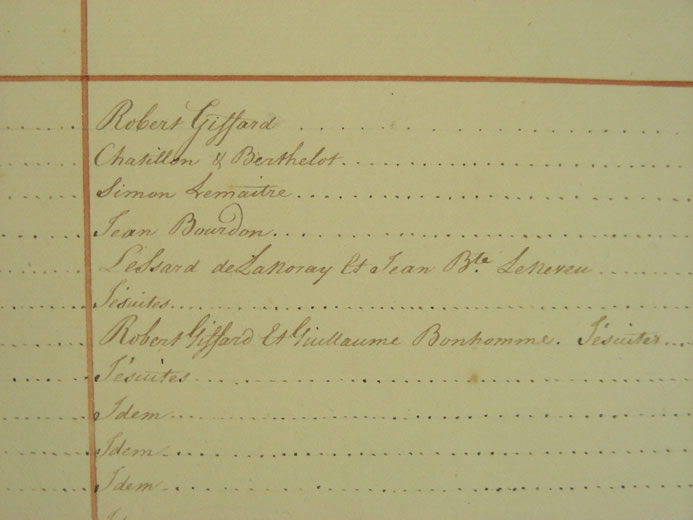 Robert Giffard
Chatillon & Berthelot
Simon Lemaitre
Jean Bourdon
Lessard de Et Jean Bte.
Jésuites
Robert Giffard Et Guillaume Bonhomme. Jésuites
Jésuites
Idem
Idem
Idem